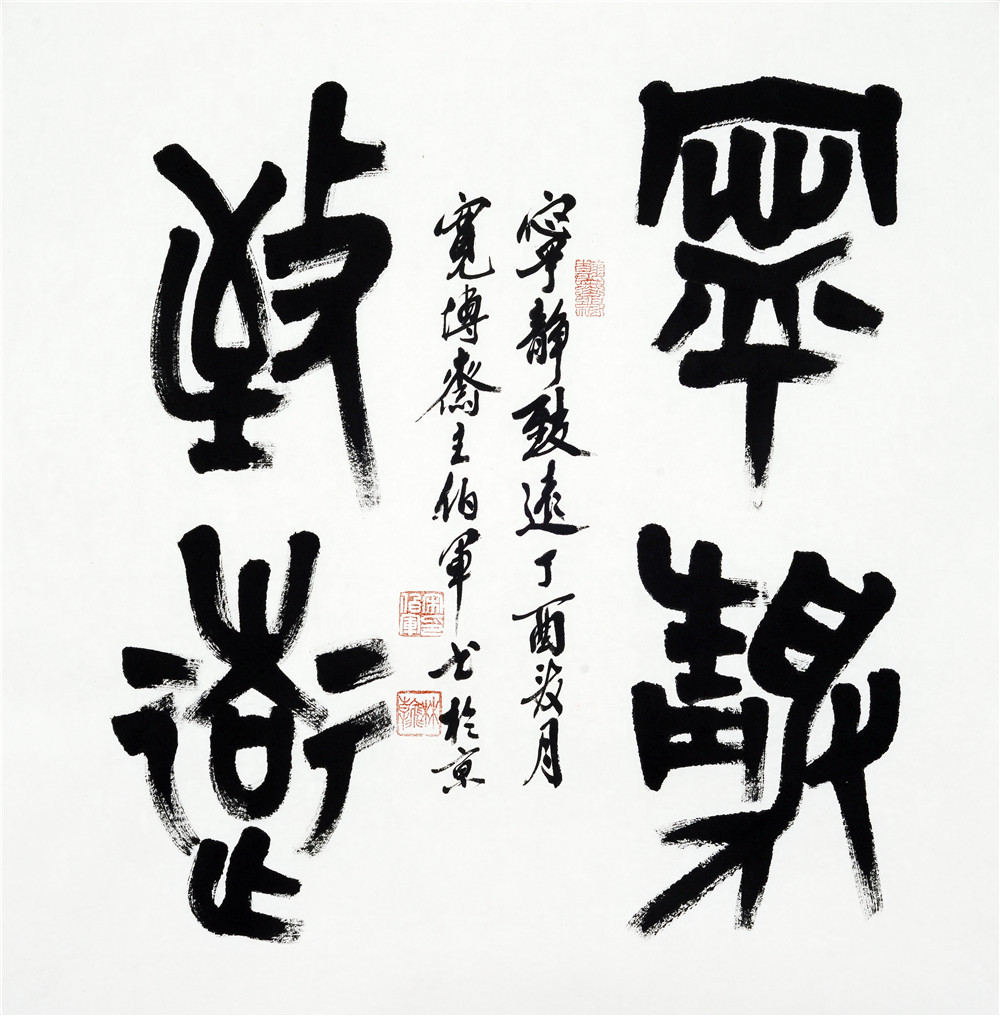 寧靜
致遠
寧靜致遠丁酉月
寬博齋主伯軍书於京
宋印伯軍